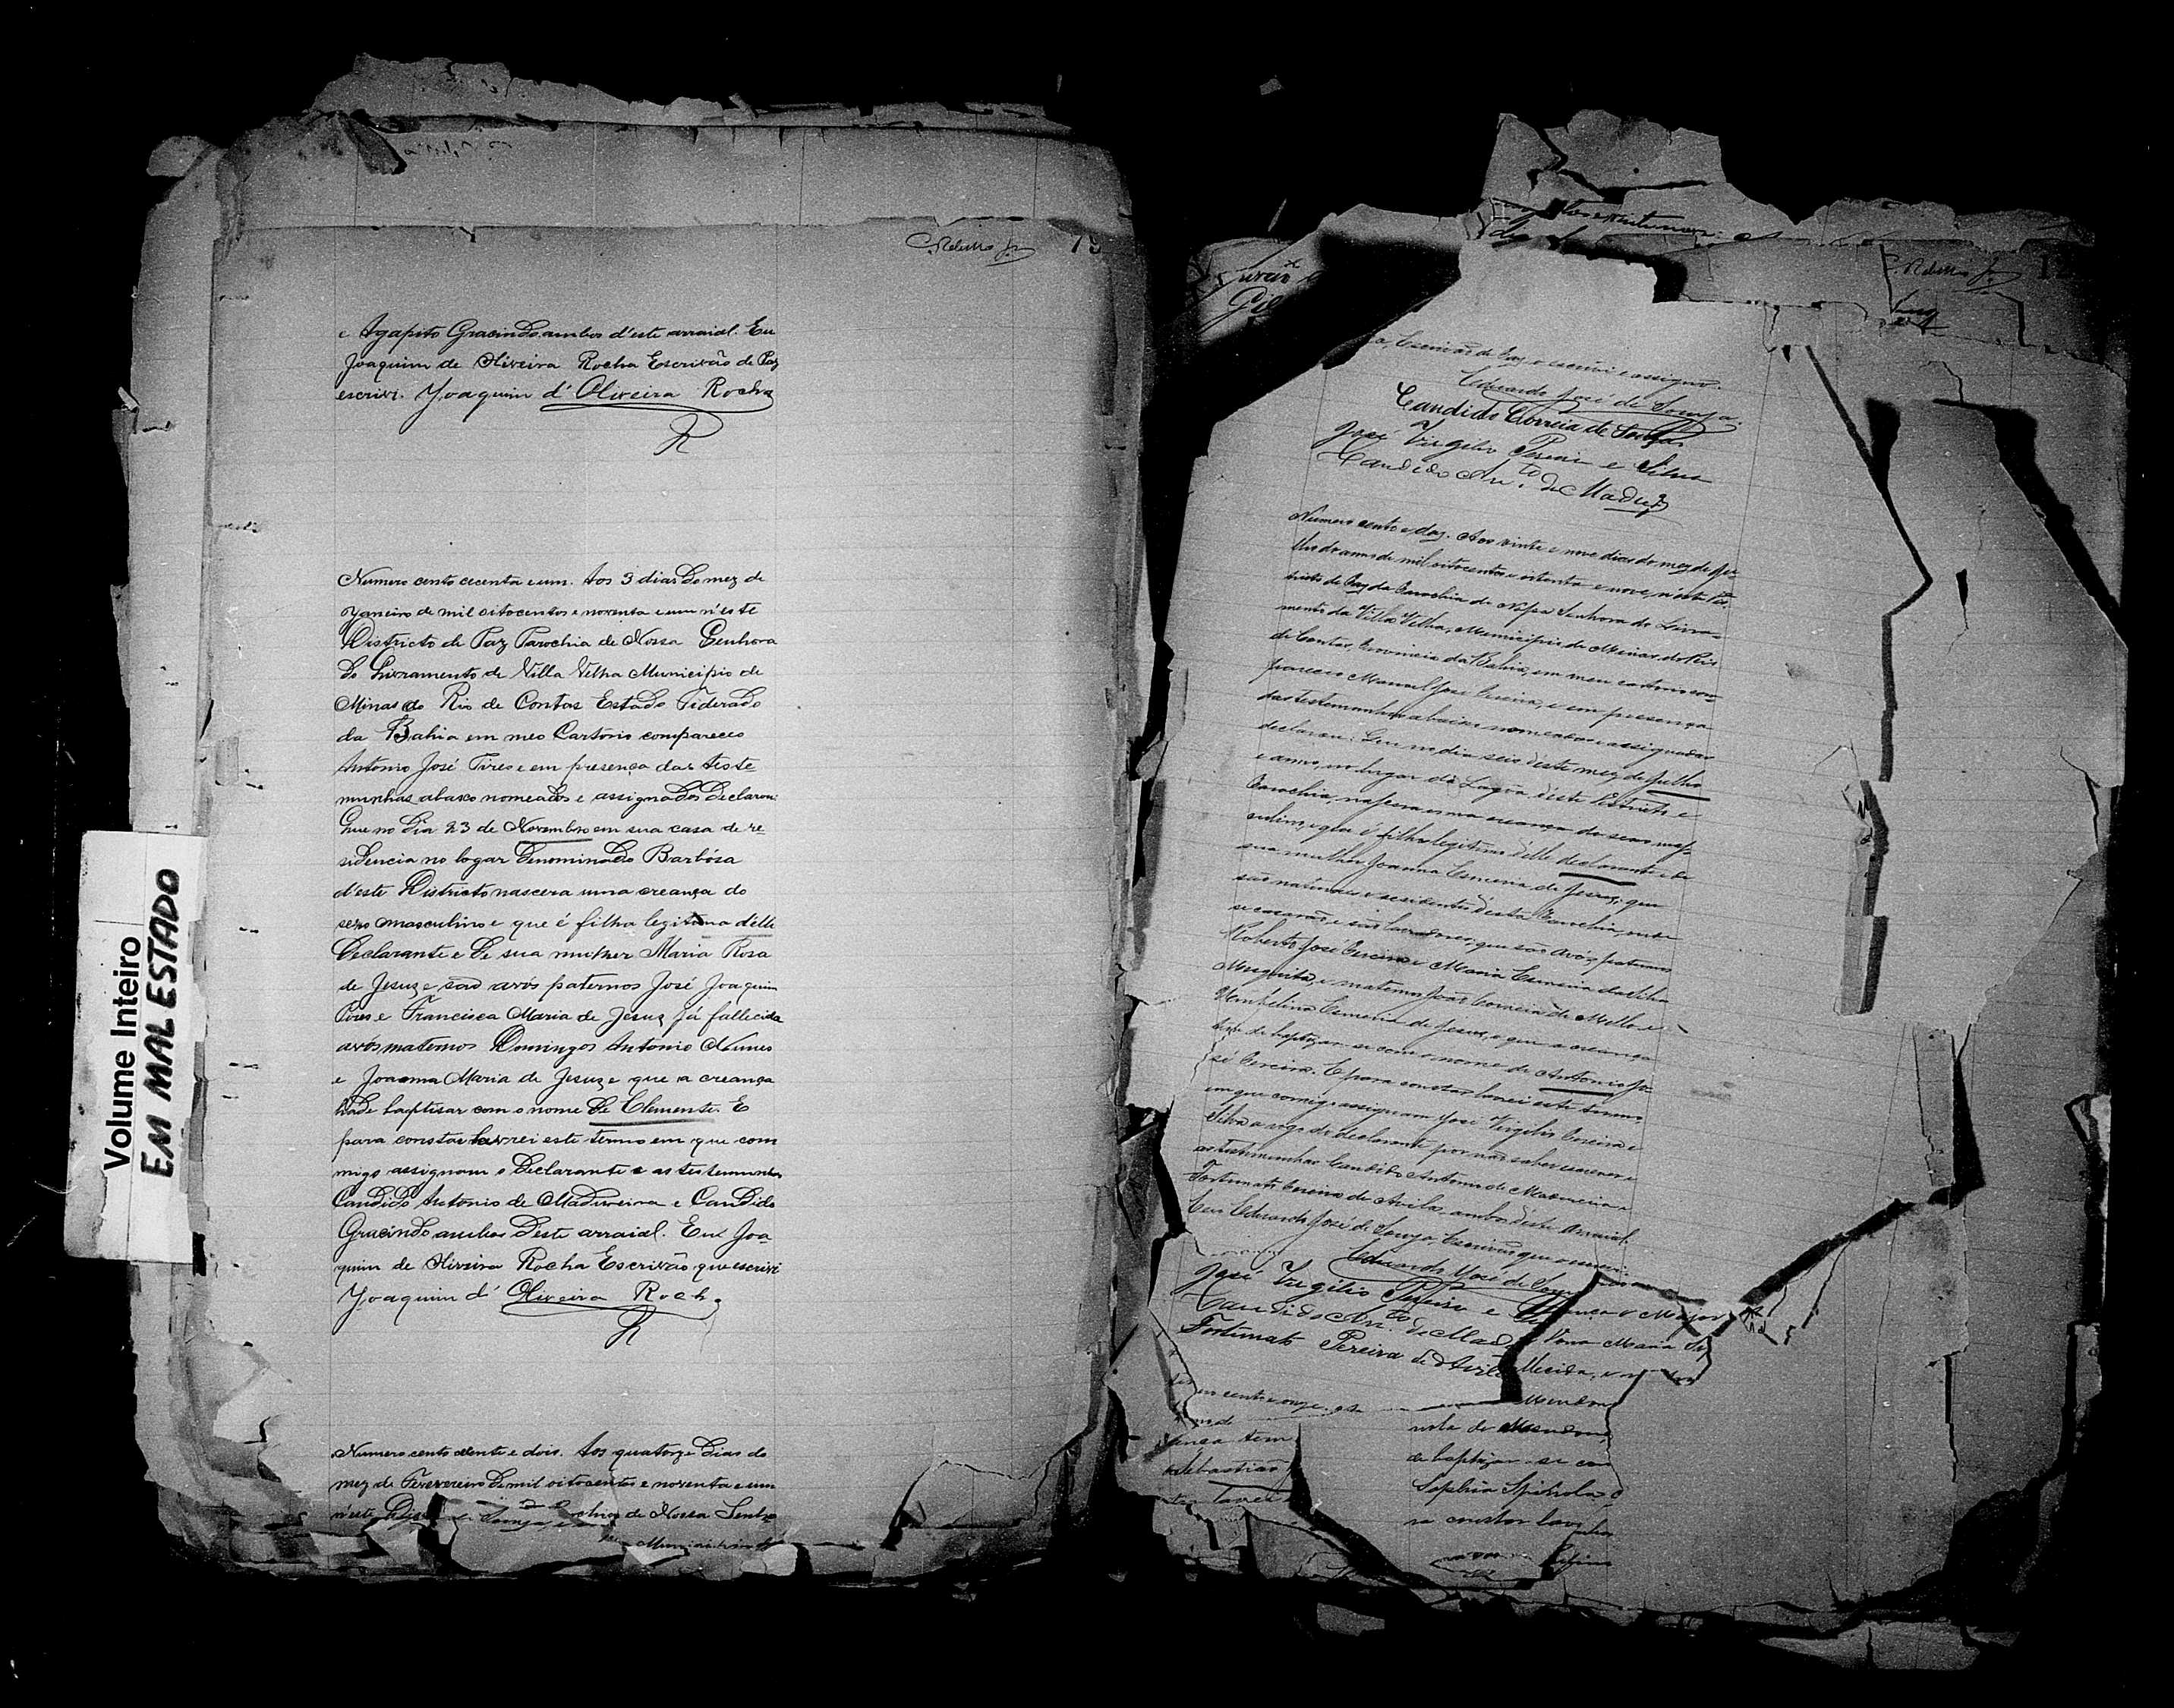 Volume Inteiro
EM MAL ESTADO
e Agapito Gracindo ambos d'este arraial. Eu
Joaquim de Oliveira Rocha Escrivão de Paz
escrivi. Joaquim d'Oliveira Rocha
R
Numero cento cecenta e um. Aos 3 dias do mez de
Janeiro de mil oitocentos e noventa e um n'este
Districto de Paz Parochia de Nossa Senhora
do Livramento de Villa Velha Municipio de
Minas do Rio de Contas Estado Federado
da Bahia em meo Cartorio compareceo
Antonio José Pires e em presença das teste
munhas abaxo nomeados e assignados declarou:
Que no dia 23 de Novembro em sua casa de re
sidencia no logar denominado Barbósa
d'este Districto nascera uma creança do
sexo masculino e que é filha legitima d'elle
Declarante e de sua mulher Maria Rosa
de Jesuz e são avós paternos José Joaquim
Pires e Francisca Maria de Jesuz já fallecida
avós maternos Domingos Antonio Nunes
e Joanna Maria de Jesuz e que a creança
hade baptisar com o nome de Clemente. E
para constar lavrei este termo em que com
migo assignam o Declarante e as testemunhas
Candido Antonio de Madureira e Candido
Gracindo ambos d'este arraial. Eu Joa
quim de Oliveira Rocha Escrivão que escrivi
Joaquim d'Oliveira Rocha
R
Numero cento e dois. Aos quatorze dias do
mez de Fevereiro de mil oitocentos e noventa e um
n'este de Nossa Senho
Escrivão de Paz o escrivi e assigno.
Eduardo José de Souza
Candido Correia de Souza
José Virgilio Pereira e Silva
Candido Ant.º de Madur.ª
Numero cento e dez. Aos vinte e nove dias do mez de Ju
lho do anno de mil oitocentos e oitenta e nove, n'este Dis
tricto de Paz da Parochia de Nossa Senhora do Livra
mento da Villa Velha, Municipio de Minas do Rio
de Contas, Provincia da Bahia, em meu cartorio com
pareceo Manoel José Pereira, e em presença
das testemunhas abaixo nomeadas e assignadas
declarou: Que no dia seis d'este mez de Julho
e anno, no lugar da Lagôa d'este Districto e
Parochia, nascera uma creança do sexo mas
culino, e que é filho legitimo d'elle declarante e de
sua mulher Joanna Esmeria de Jesus; que
são naturaes e residentes d'esta Parochia, onde
se casarão e são lavradores; que são avós paternos
Roberto José Pereira e Maria Esmeria da Silva
Mesquita, e maternos João Correia de Mello e
Umbelina Esmeria de Jesus, e que a creança
tem de baptizar-se com o nome de Antonio Jo
sé Pereira. E para constar lavrei este termo
em que comigo assignam José Virgilio Pereira e
Silva a rogo do declarante por não saber escrever e
as testemunhas Candido Antonio de Madureira e
Fortunato Pereira de Avila, ambos d'este arraial.
Eu Eduardo José de Souza, Escrivão que escrevi.
Eduardo José de Sou
José Virgilio Pereira e
Candido Ant.º de Mad Dona Maria
Fortunato Pereira de Avila
cento e onze
de baptizar-se com
Sebastião
Sophia Spinola
ra constar lav